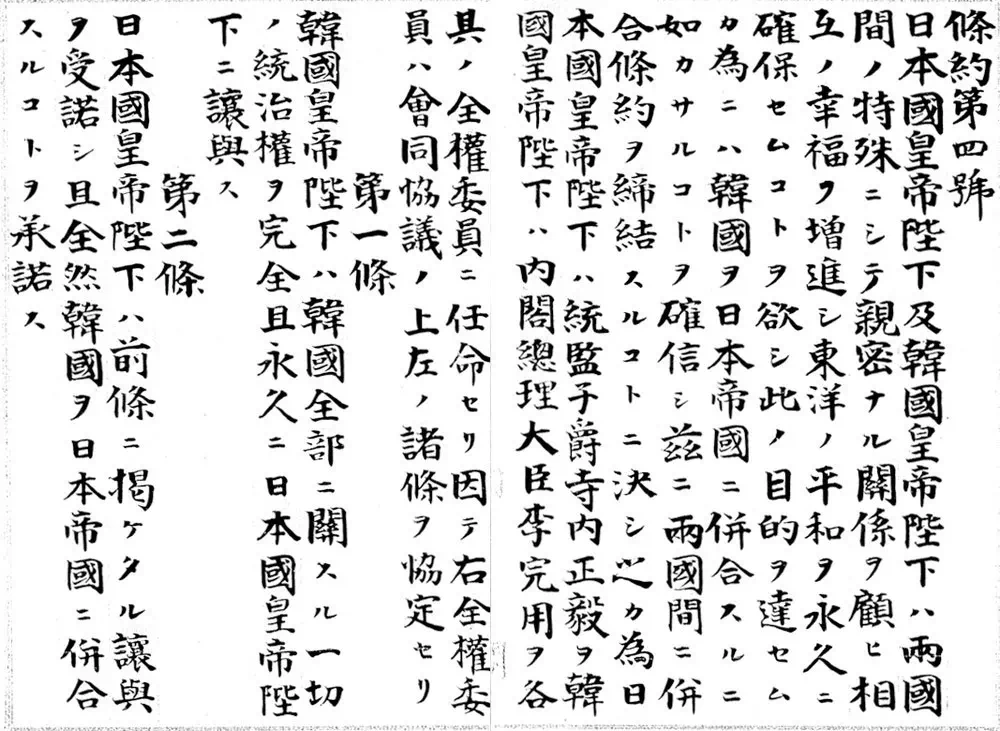 條約第四號
日本國皇帝陛下及韓國皇帝陛下ハ兩國
間ノ特殊ニシテ親密ナル關係ヲ顧ヒ相
互ノ幸福ヲ增進シ東洋ノ平和ヲ永久ニ
確保セムコトヲ欲シ此ノ目的ヲ達セム
カ為ニハ韓國ヲ日本帝國ニ併合スルニ
如カサルコトヲ確信シ茲ニ兩國間ニ併
合條約ヲ締結スルコトニ決シ之カ為日
本國皇帝陛下ハ統監子爵寺内正毅ヲ韓
國皇帝陛下ハ内閣總理大臣李完用ヲ各
其ノ全權委員ニ任命セリ因テ右全權委
員ハ會同協議ノ上左ノ諸條ヲ協定セリ
第一條
韓國皇帝陛下ハ韓國全部ニ關スル一切
ノ統治權ヲ完全且永久ニ日本國皇帝陛
下ニ讓與ス
第二條
日本國皇帝陛下ハ前條ニ揭ケタル讓與
ヲ受諾シ且全然韓國ヲ日本帝國ニ併合
スルコトヲ承諾ス